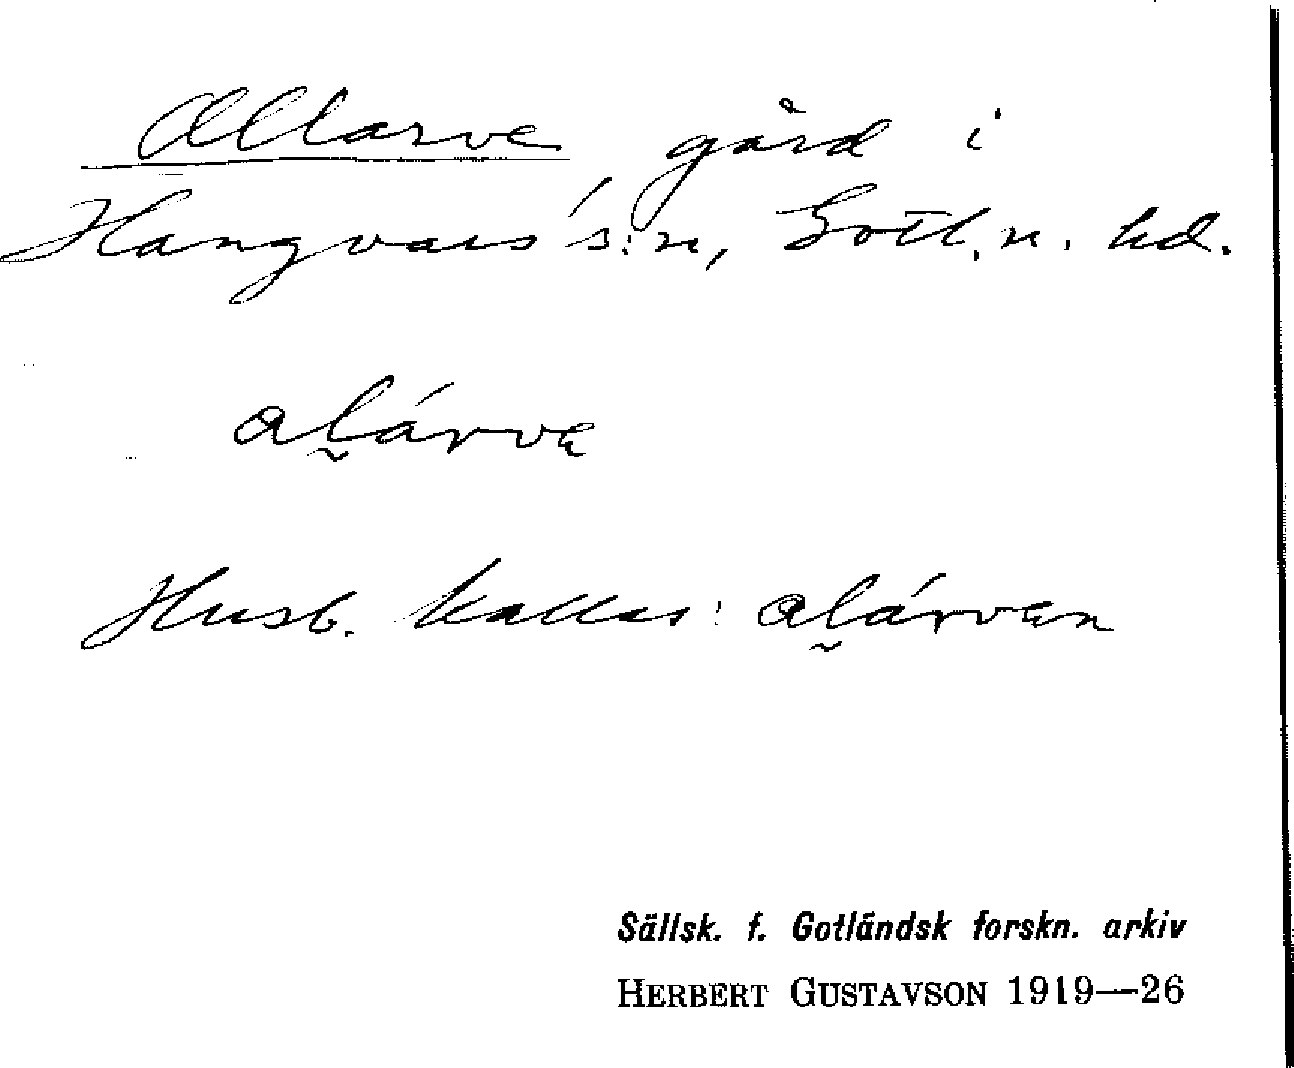 Allarve gård i
Hangvars s:n, Gotl. n. hd.
al̰árve
Husb. kallas: al̰árven
Sällsk. f. Gotländsk forskn. arkiv
HERBERT GUSTAVSON 1919—26